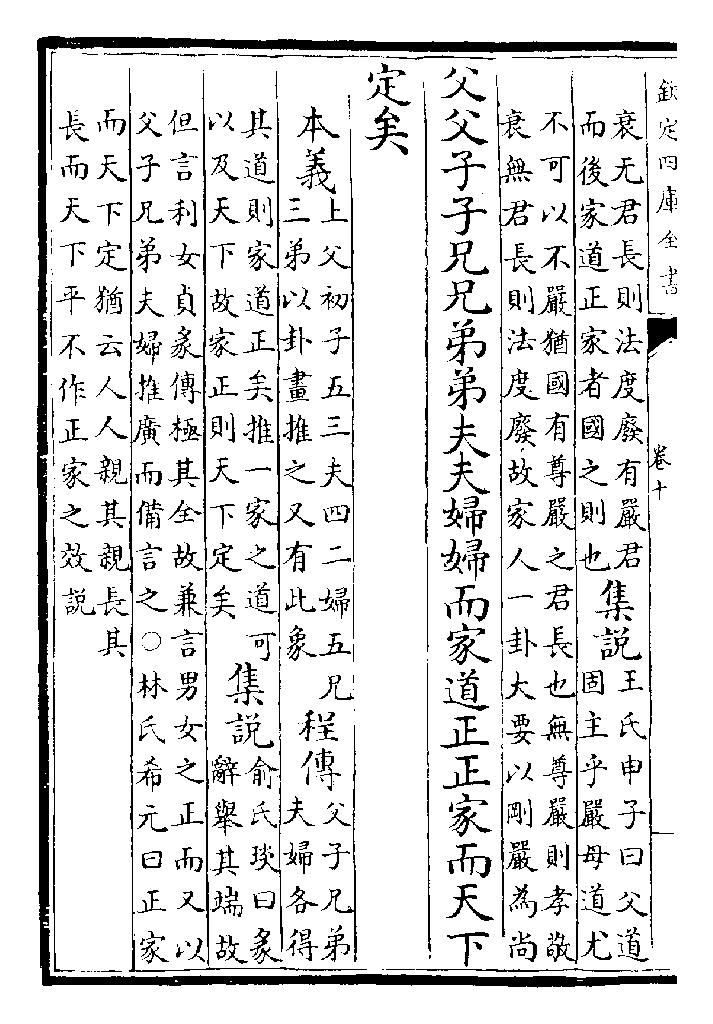 欽定四庫全書
卷十
衰无君長則法度廢有嚴君
而後家道正家者國之則也
集說
王氏申子曰父道
固主乎嚴母道尤
不可以不嚴猶國有尊嚴之君長也無尊嚴則孝敬
衰無君長則法度廢故家人一卦大要以剛嚴為尚
父父子子兄兄弟弟夫夫婦婦而家道正正家而天下
定矣
本義
上父初子五三夫四二婦五兄
三弟以卦畫推之又有此象
程傳
父子兄弟
夫婦各得
其道則家道正矣推一家之道可
以及天下故家正則天下定矣
集說
俞氏琰曰彖
辭舉其端故
但言利女貞彖傳極其全故兼言男女之正而又以
父子兄弟夫婦推廣而備言之○林氏希元曰正家
而天下定猶云人人親其親長其
長而天下平不作正家之效說